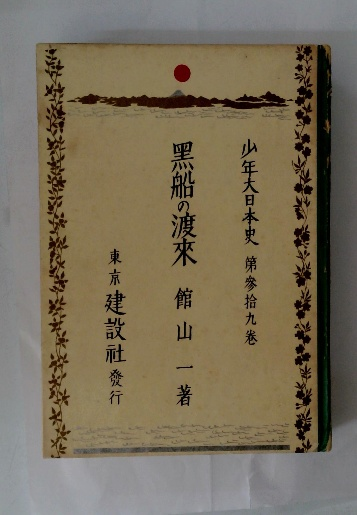 少年大日本史 第參拾九卷
黑船の渡來 館山一著
東京 建設社 發行